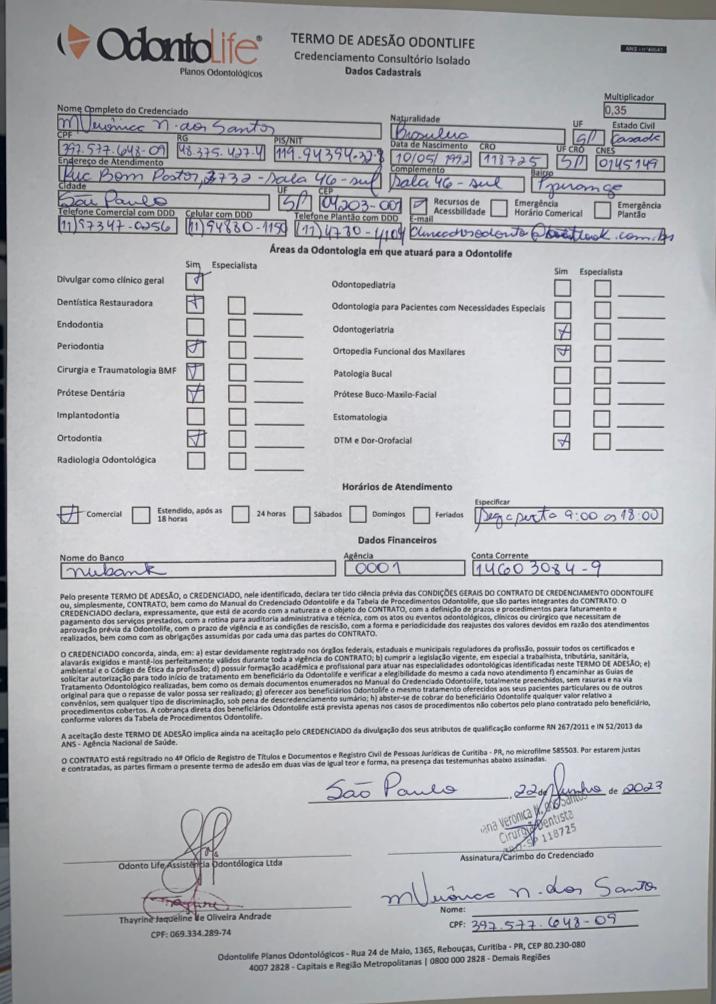 OdontoLife®
Planos Odontológicos
TERMO DE ADESÃO ODONTLIFE
Credenciamento Consultório Isolado
Dados Cadastrais
Multiplicador
0,35
Nome Completo do Credenciado Naturalidade UF Estado Civil
MVerônica N. dos Santos Brasileira SP Casada
CPF RG PIS/NIT Data de Nascimento CRO UF CRO CNES
397.577.648-09 48.375.427-4 119.94394.32-8 10/05/1992 118725 SP 0145149
Endereço de Atendimento Complemento Bairro
Rua Bom Pastor, 2732 - Sala 46 - sul Sala 46 - sul Ipiranga
Cidade UF CEP
São Paulo SP 04203-001
Recursos de Acessbilidade
Emergência Horário Comerical
Emergência Plantão
Telefone Comercial com DDD Celular com DDD Telefone Plantão com DDD E-mail
(11) 97347-0256 (11) 94880-1159 (11) 4730-4104
Áreas da Odontologia em que atuará para a Odontolife
Sim Especialista Sim Especialista
Divulgar como clínico geral Odontopediatria
Dentística Restauradora Odontologia para Pacientes com Necessidades Especiais
Endodontia Odontogeriatria
Periodontia Ortopedia Funcional dos Maxilares
Cirurgia e Traumatologia BMF Patologia Bucal
Prótese Dentária Prótese Buco-Maxilo-Facial
Implantodontia Estomatologia
Ortodontia DTM e Dor-Orofacial
Radiologia Odontológica
Horários de Atendimento
Especificar
Comercial Estendido, após as 18 horas 24 horas Sábados Domingos Feriados 9:00 as 18:00
Dados Financeiros
Nome do Banco Agência Conta Corrente
nubank 0001 14603084-9
Pelo presente TERMO DE ADESÃO, o CREDENCIADO, nele identificado, declara ter tido ciência prévia das CONDIÇÕES GERAIS DO CONTRATO DE CREDENCIAMENTO ODONTOLIFE
ou, simplesmente, CONTRATO, bem como do Manual do Credenciado Odontolife e da Tabela de Procedimentos Odontolife, que são partes integrantes do CONTRATO. O
CREDENCIADO declara, expressamente, que está de acordo com a natureza e o objeto do CONTRATO, com a definição de prazos e procedimentos para faturamento e
pagamento dos serviços prestados, com a rotina para auditoria administrativa e técnica, com os atos ou eventos odontológicos, clínicos ou cirúrgico que necesitam de
aprovação prévia da Odontolife, com o prazo de vigência e as condições de rescisão, com a forma e periodicidade dos reajustes dos valores devidos em razão dos atendimentos
realizados, bem como as obrigações assumidas por cada uma das partes do CONTRATO.
O CREDENCIADO concorda, ainda, em: a) estar devidamente registrado nos órgãos federais, estaduais e municipais reguladores da profissão, possuir todos os certificados e
alavarás exigidos e mantê-los perfeitamente válidos durante toda a vigência do CONTRATO; b) cumprir a legislação vigente, em especial a trabalhista, tributária, sanitária,
ambiental e o Código de Ética da profissão; d) possuir formação acadêmica e profissional para atuar nas especialidades odontológicas identificadas neste TERMO DE ADESÃO; e)
solicitar autorização para todo início de tratamento em beneficiário da Odontolife e verificar a elegibilidade do mesmo a cada novo atendimento f) encaminhar as Guias de
Tratamento Odontológico realizadas, bem como os demais documentos enumerados no Manual do Credenciado Odontolife, totalmente preenchidos, sem rasuras e na via
original para que o repasse de valor possa ser realizado; g) oferecer aos beneficiários Odontolife o mesmo tratamento oferecidos aos seus pacientes particulares ou de outros
convênios, sem qualquer tipo de discriminação, sob pena de descredenciamento sumário; h) abster-se de cobrar do beneficiário Odontolife qualquer valor relativo a
procedimentos cobertos. A cobrança direta dos beneficiários Odontolife está prevista apenas nos casos de procedimentos não cobertos pelo plano contratado pelo beneficiário,
conforme valores da Tabela de Procedimentos Odontolife.
A aceitação deste TERMO DE ADESÃO implica ainda na aceitação pelo CREDENCIADO da divulgação dos seus atributos de qualificação conforme RN 267/2011 e IN 52/2013 da
ANS - Agência Nacional de Saúde.
O CONTRATO está registrado no 4º Oficio de Registro de Títulos e Documentos e Registro Civil de Pessoas Jurídicas de Curitiba - PR, no microfilme 585503. Por estarem justas
e contratadas, as partes firmam o presente termo de adesão em duas vias de igual teor e forma, na presença das testemunhas abaixo assinadas.
São Paulo, 22 de Junho de 2023
Veronica N. dos Santos
Cirurgiã Dentista
CRO-SP 118725
Odonto Life Assistência Odontólogica Ltda Assinatura/Carimbo do Credenciado
Thayrine
MVerônica N. dos Santos
Thayrine Jaqueline de Oliveira Andrade Nome:
CPF: 069.334.289-74 CPF: 397.577.648-09
Odontolife Planos Odontológicos - Rua 24 de Maio, 1365, Rebouças, Curitiba - PR, CEP 80.230-080
4007 2828 - Capitais e Região Metropolitanas | 0800 000 2828 - Demais Regiões